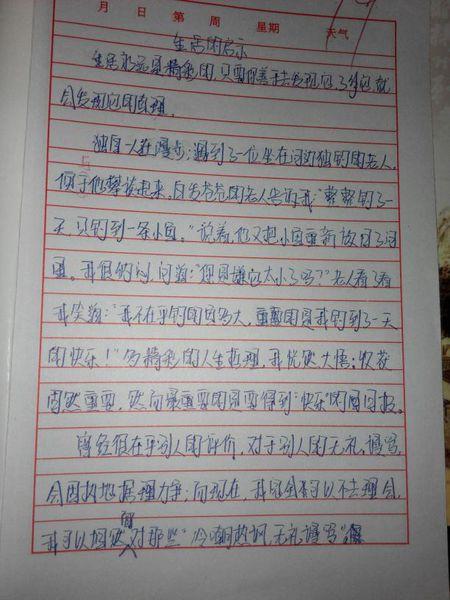 月 日 第 周 星期 天气
生活的启示
生活永远是精彩的,只要你善于去发现它,了解它,就
会发现它的真理。
独自一人在漫步;遇到了一位坐在河边独钓的老人,
便于他攀谈起来,白发苍苍的老人告诉我"整整钓了一
天,只钓到一条小鱼。"说着,他又把小鱼重新放回了河
里。我很纳闷,问道:"你是嫌它太小了吗?"老人看了看
我笑道:"我不在乎钓的鱼多大,重要的是我钓到了一天
的快乐!"多精彩的人生哲理,我恍然大悟:收获
固然重要,然而最重要的是要得到"快乐"的回报。
曾经很在乎别人的评价,对于别人的无礼,谩骂,
会因执地据理力争;而现在,我完全可以不去理会,
我可以坦然面对那些"冷嘲热讽,无礼谩骂"